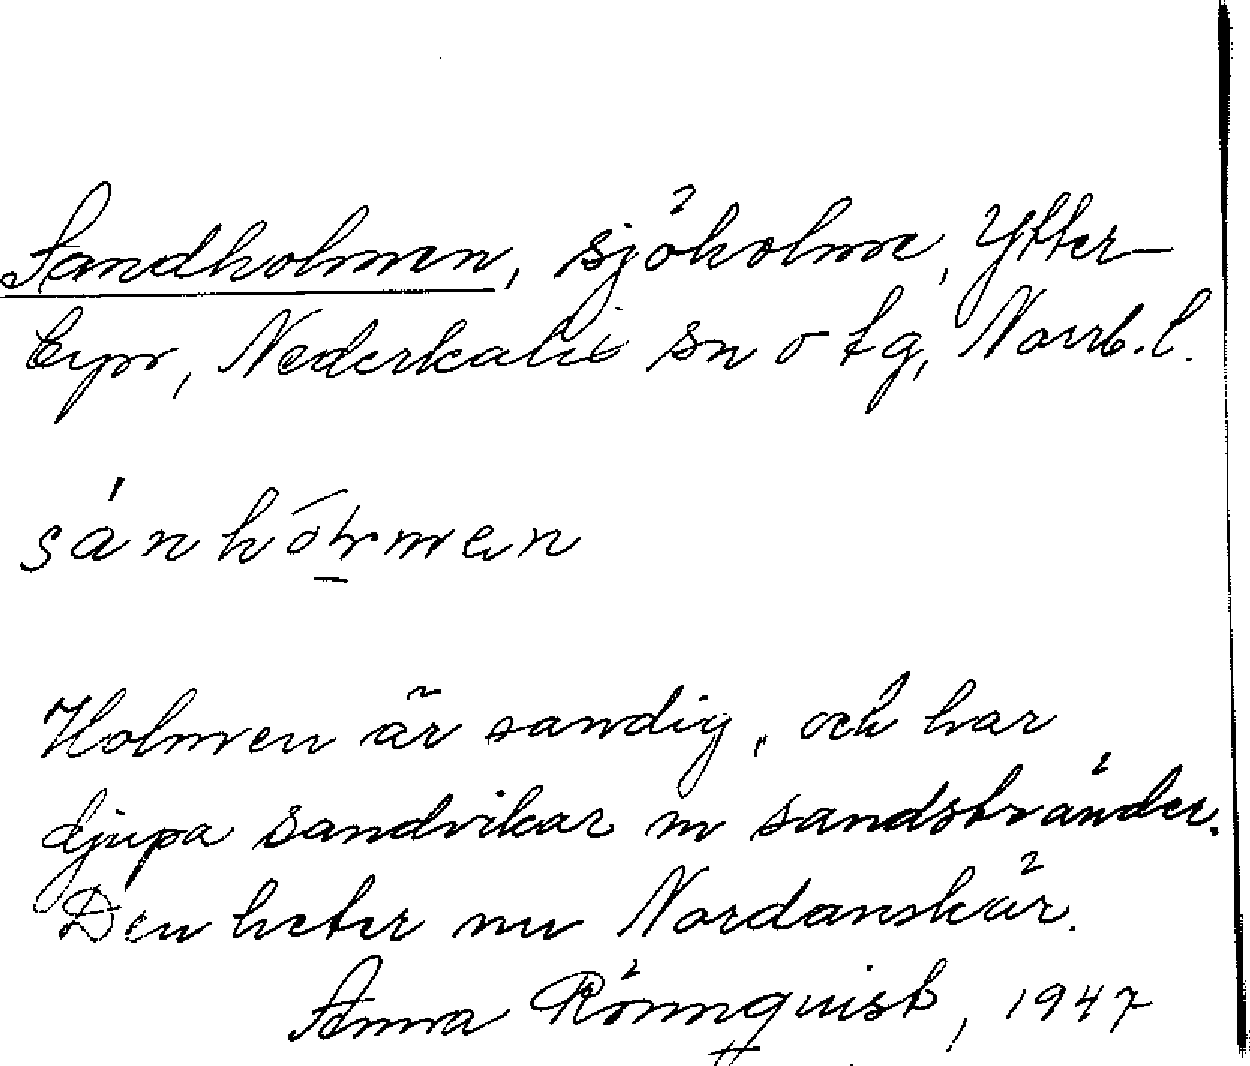 Sandholmen, sjöholme, Ytter-
byn, Nederkalix sn o tg, Norrb. l.
Holmen är sandig, och har
djupa sandvikar m sandstränder.
Den heter nu Nordanskär.
Anna Rönnquist, 1947